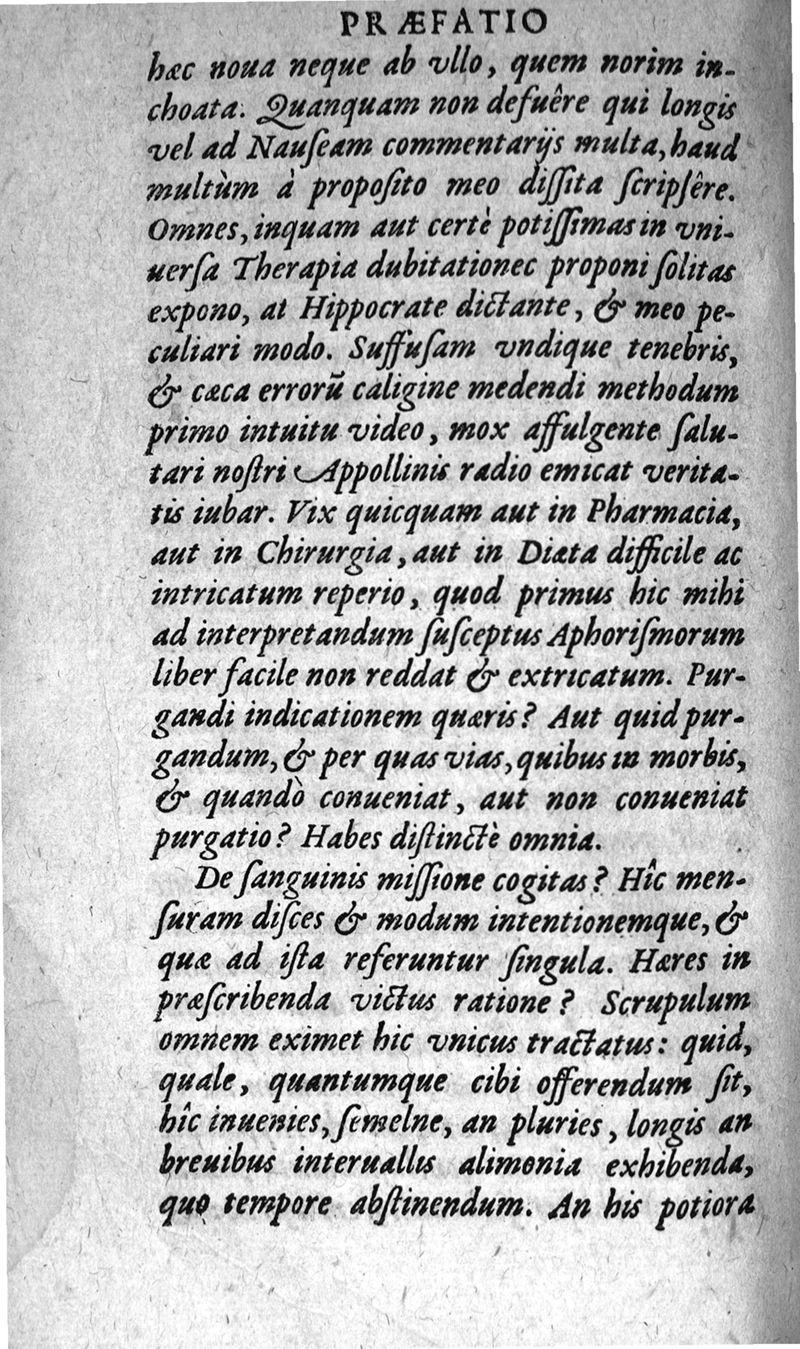 PRÆFATIO
hæc noua neque ab vllo, quem norim in-
choata. Quanquam non defuêre qui longis
vel ad Nauſeam commentarijs multa, haud
multùm à propoſito meo diſſita ſcripſêre.
Omnes, inquam aut certè potiſſimas in vni-
uerſa Therapia dubitationec proponi ſolitas
expono, at Hippocrate dictante, & meo pe-
culiari modo. Suffuſam vndique tenebris,
& cæca errorū caligine medendi methodum
primo intuitu video, mox affulgente ſalu-
tari noſtri Appollinis radio emicat verita-
tis iubar. Vix quicquam aut in Pharmacia,
aut in Chirurgia, aut in Diæta difficile ac
intricatum reperio, quod primus hic mihi
ad interpretandum ſuſceptus Aphoriſmorum
liber facile non reddat & extricatum. Pur-
gandi indicationem quæris? Aut quid pur-
gandum, & per quas vias, quibus in morbis,
& quandò conueniat, aut non conueniat
purgatio? Habes diſtinctè omnia.
De ſanguinis miſſione cogitas? Hîc men-
ſuram diſces & modum intentionemque, &
quæ ad iſta referuntur ſingula. Hæres in
præſcribenda victus ratione? Scrupulum
omnem eximet hic vnicus tractatus: quid,
quale, quantumque cibi offerendum ſit,
hîc inuenies, ſemelne, an pluries, longis an
breuibus interuallis alimonia exhibenda,
quo tempore abſtinendum. An his potiora